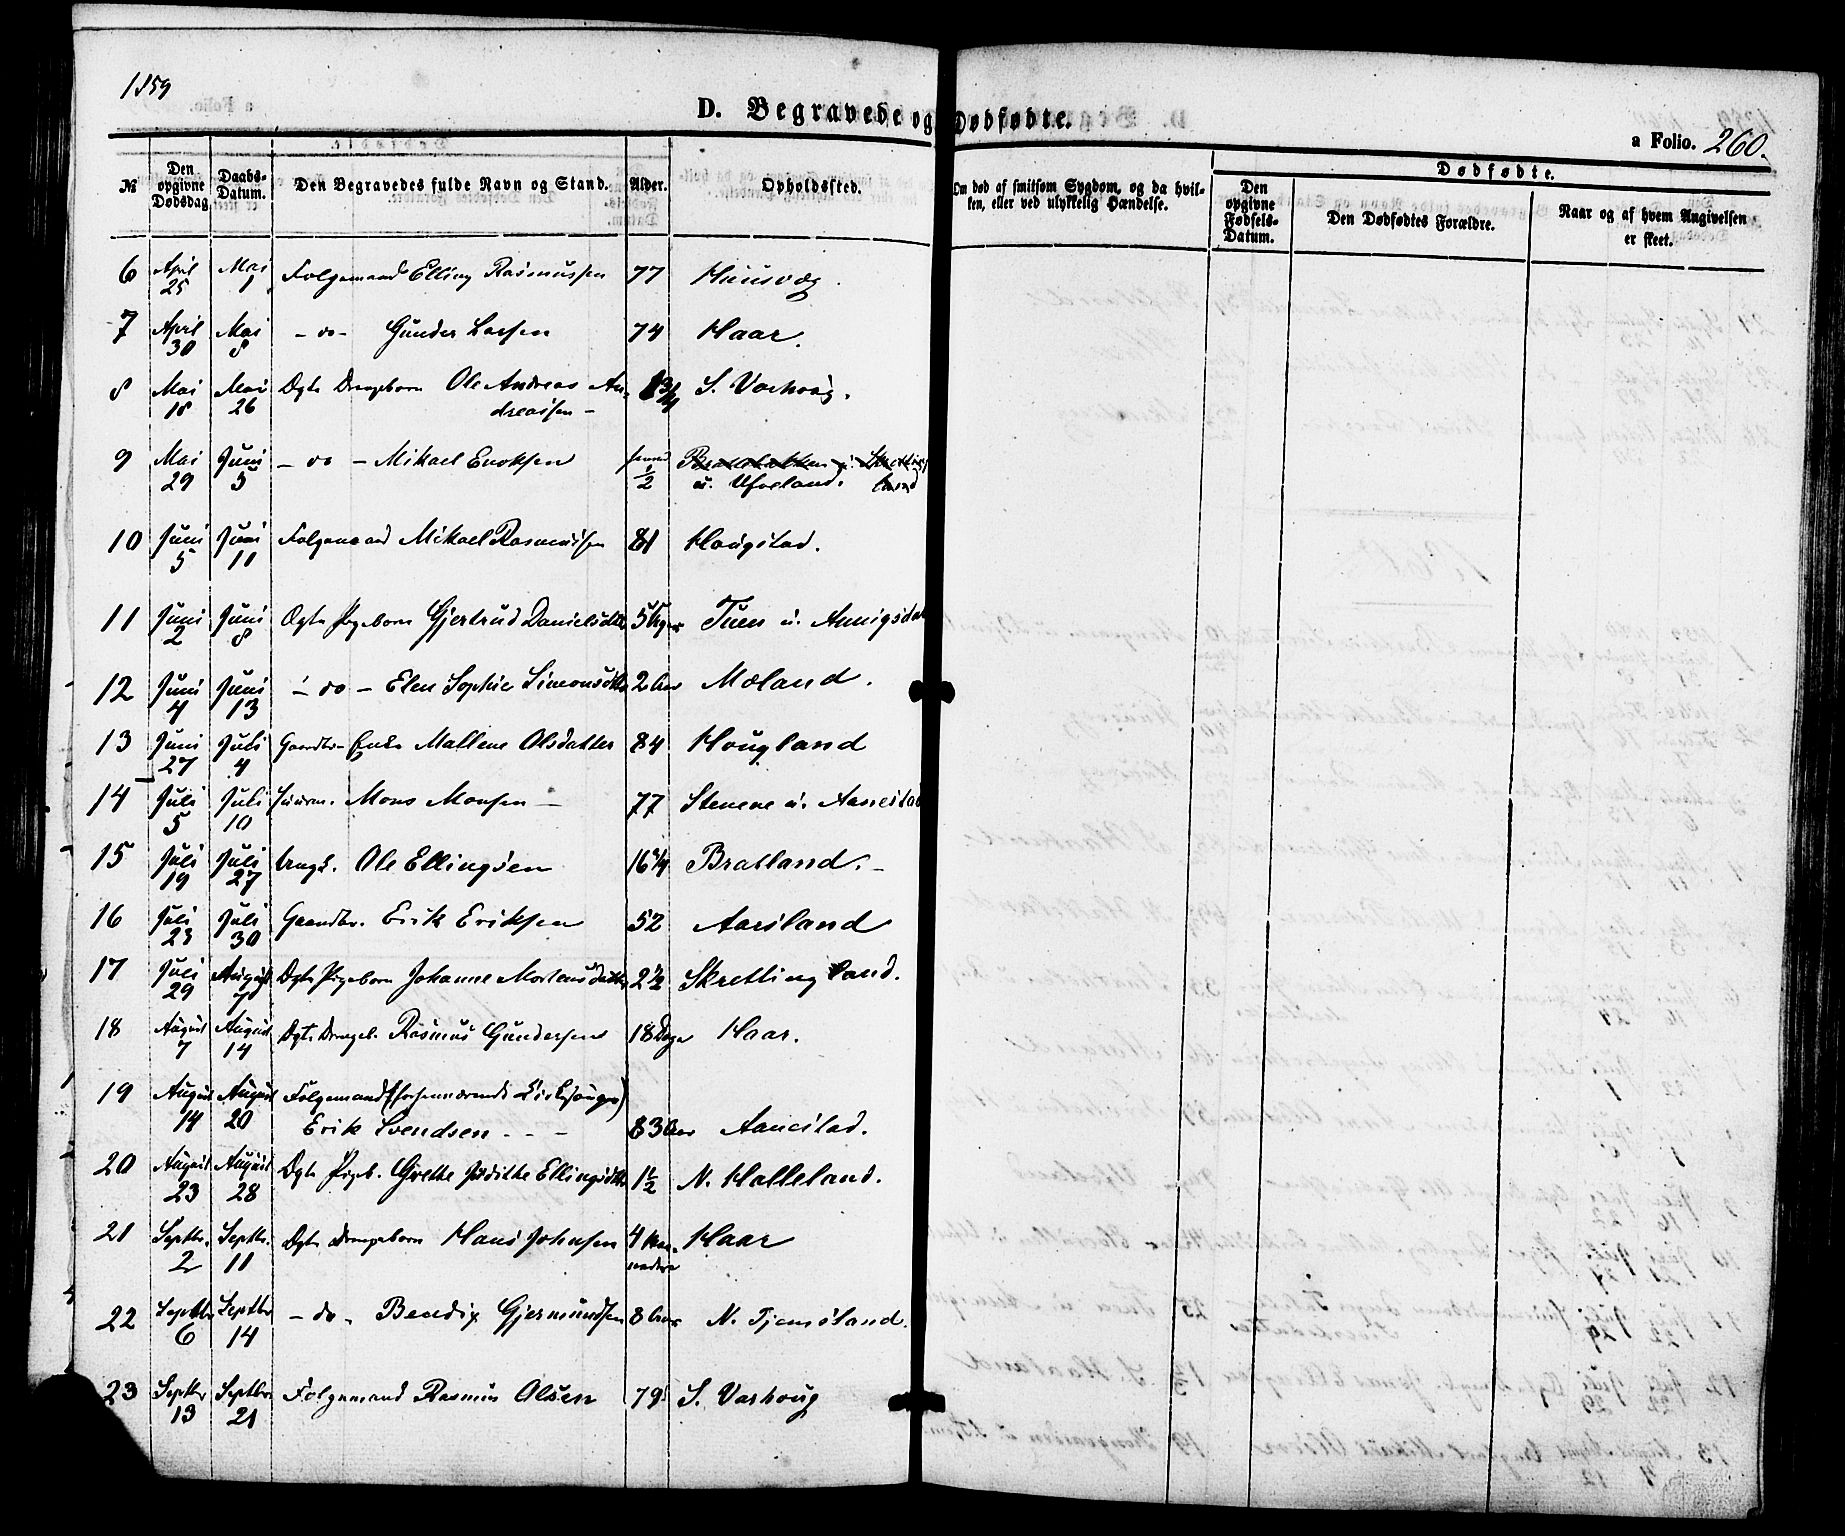 1859
D. Begravede og Dødfødte.
a Folio. 260.
№
Den opgivne Dødsdag
Daabs-Datum.
Den Begravedes fulde Navn og Stand.
Alder.
Opholdssted.
Om død af smitsom Sygdom, og da hvilken, eller ved ulykkelig Hændelse.
Dødfødte.
Den opgivne Fødsels-Datum.
Den Dødfødtes Forældre.
Naar og af hvem Angivelsen er skeet.
6 April 25 Mai 1 Folgemand Elling Rasmussen 77 Huusvæg.
7 April 30 Mai 8 - do - Gunder Larsen 74 Haar.
8 Mai 18 Mai 26 Ægte Drengebarn Ole Andreas Andreassen - 1 3/4 S. Varhoug.
9 Mai 29 Juni 5 - do - Mikael Enoksen 1/2 u. Ueland.
10 Juni 5 Juni 11 Folgemand Mikael Rasmussen 81 Haugstad.
11 Juni 2 Juni 8 Ægte Pigebarn Gjertrud Danielsdtr 5 Uger Tuen u. Aanigsda
12 Juni 4 Juni 13 - do - Elen Sophie Simonsdtr 2 Aar Mæland.
13 Juni 27 Juli 4 Gaardbr. Enke Mallene Olsdatter 84 Hougland
14 Juli 5 Juli 10 Huusm. Mons Monsen - 77 Stenene u. Aanestad
15 Juli 19 Juli 27 Ungk. Ole Ellingsen 16 1/4 Bratland. -
16 Juli 23 Juli 30 Gaardbr. Erik Eriksen 52 Aarsland
17 Juli 29 August 7 Ægte Pigebarn Johanne Mortensdatter 2 1/2 Skretting land.
18 August 7 August 14 Ægte Drengeb. Rasmus Gundersen 18 Dage Haar.
19 August 14 August 20 Folgemand (forhenværende Kirkesanger)
Erik Svendsen - - - 83 Aar Aanestad.
20 August 23 August 28 Ægte Pigeb. Grethe Judithe Ellingsdtr 1 1/2 N. Halleland.
21 Septbr. 2 Septbr. 11 Ægte Drengebarn Hans Johnsen 4 Maaneder Haar
22 Septbr 6 Septbr 14 - do - Bendix Gjermundsen 8 Aar N. Tjemsland.
23 Septbr 13 Septbr 21 Folgemand Rasmus Olsen 79 S. Varhoug